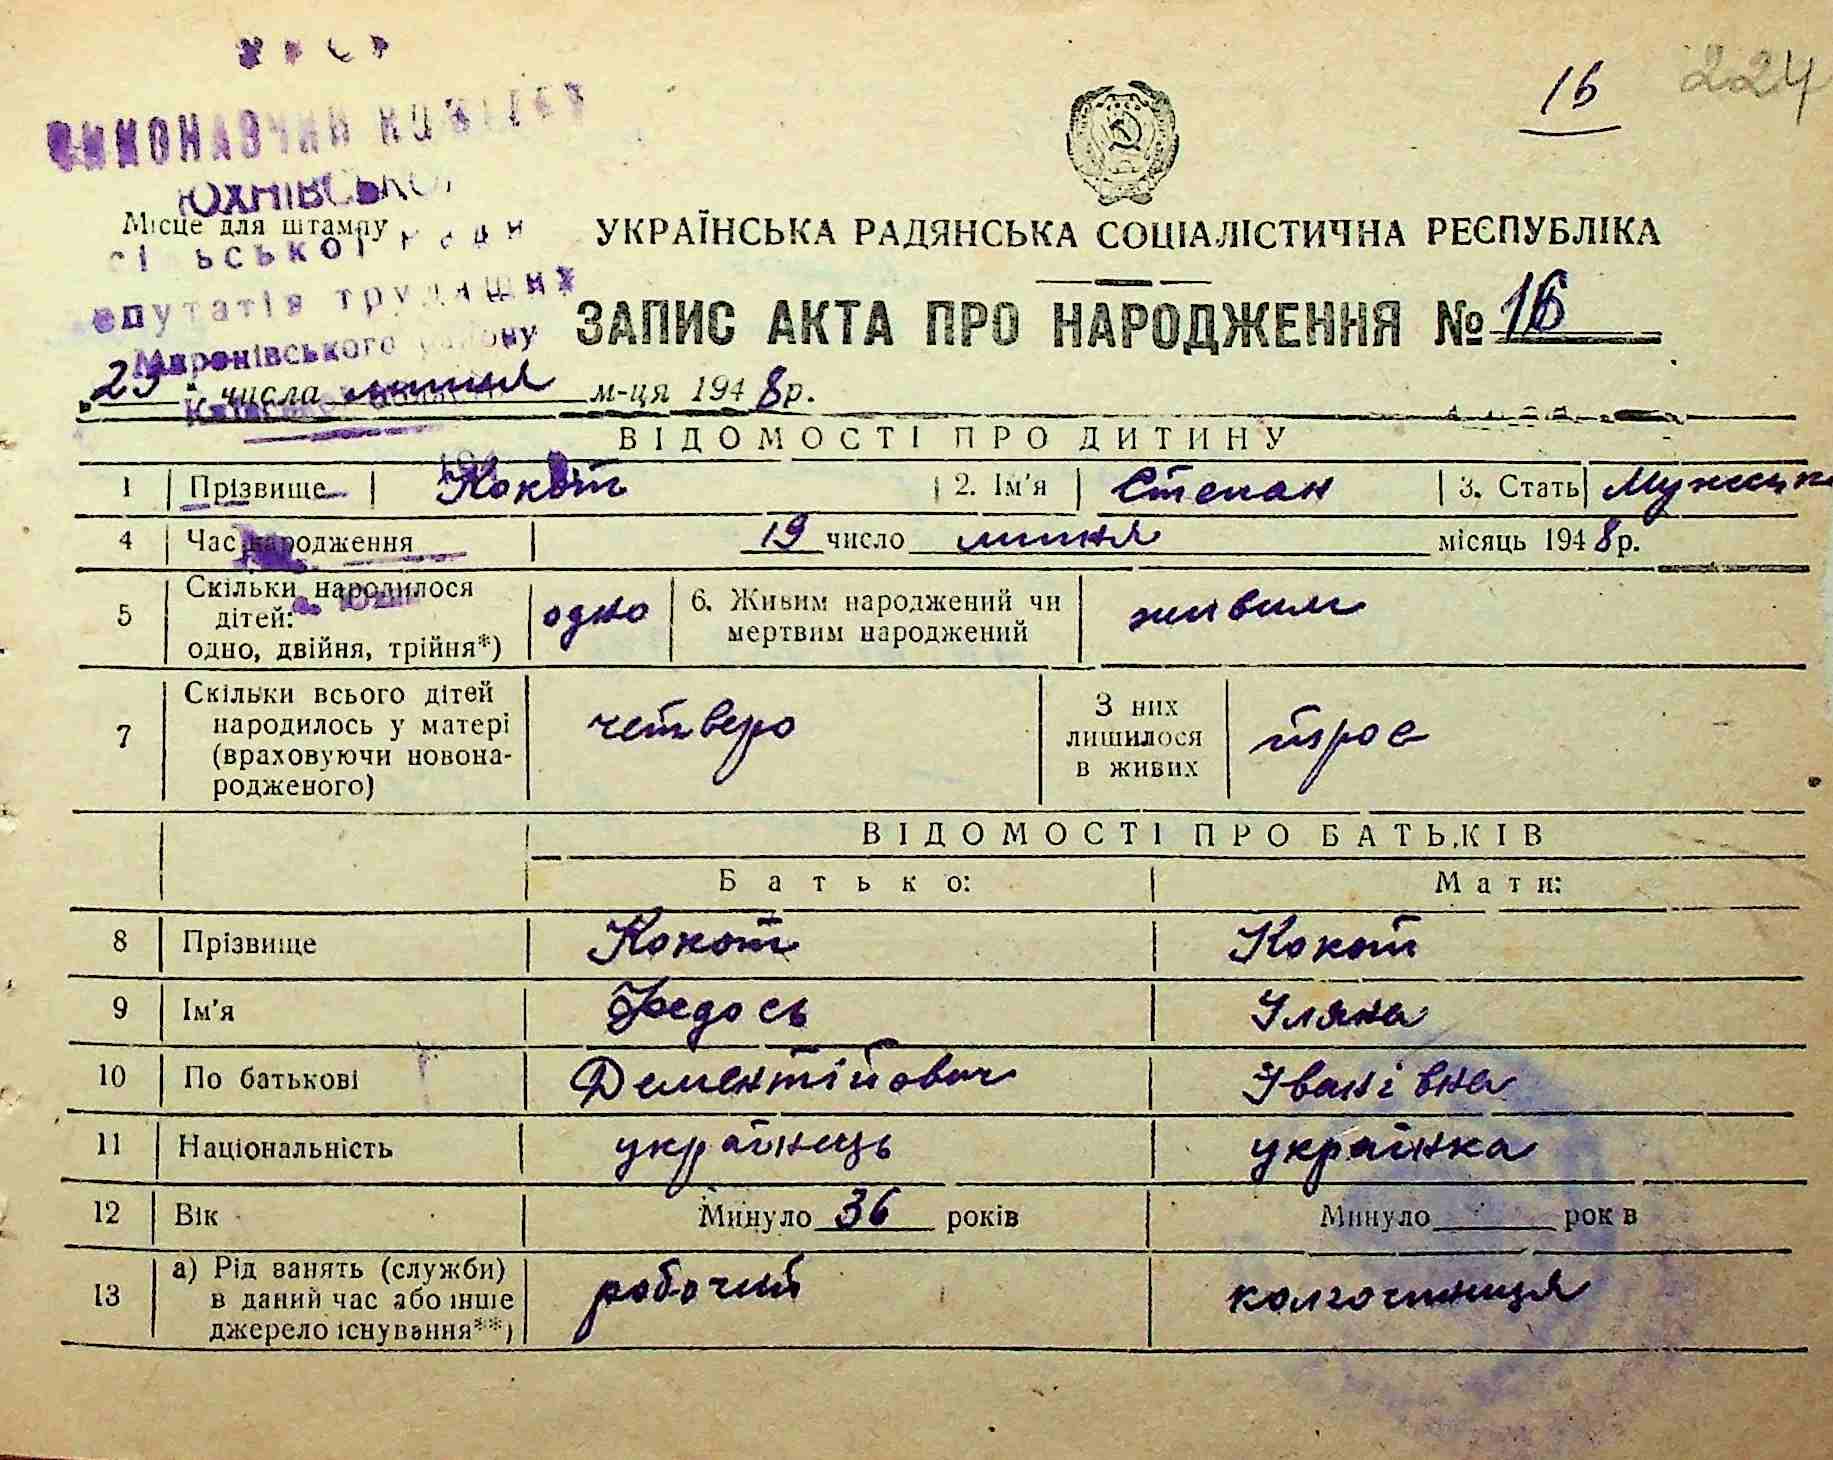 16 224
ВИКОНАВЧИЙ КОМІТЕТ
ЮХНІВСЬКОЇ
Місце для штампу
сільської ради
депутатів трудящих
Миронівського району
УКРАЇНСЬКА РАДЯНСЬКА СОЦІАЛІСТИЧНА РЕСПУБЛІКА
ЗАПИС АКТА ПРО НАРОДЖЕННЯ № 16
„23“ числа липня м-ця 1948 р.
ВІДОМОСТІ ПРО ДИТИНУ
1 Прізвище Кокот 2. Ім'я Степан 3. Стать
4 Час народження 19 число липня місяць 1948 р.
5 Скільки народилося дітей: одно, двійня, трійня*) одно 6. Живим народжений чи мертвим народжений живим
7 Скільки всього дітей народилось у матері (враховуючи новонародженого) четверо З них лишилося в живих троє
ВІДОМОСТІ ПРО БАТЬКІВ
Батько: Мати:
8 Прізвище Кокот Кокот
9 Ім'я Федось Уляна
10 По батькові Дементійович Іванівна
11 Національність українець українка
12 Вік Минуло 36 років Минуло рок в
13 а) Рід занять (служби) в даний час або інше джерело існування**) робочий колгоспниця